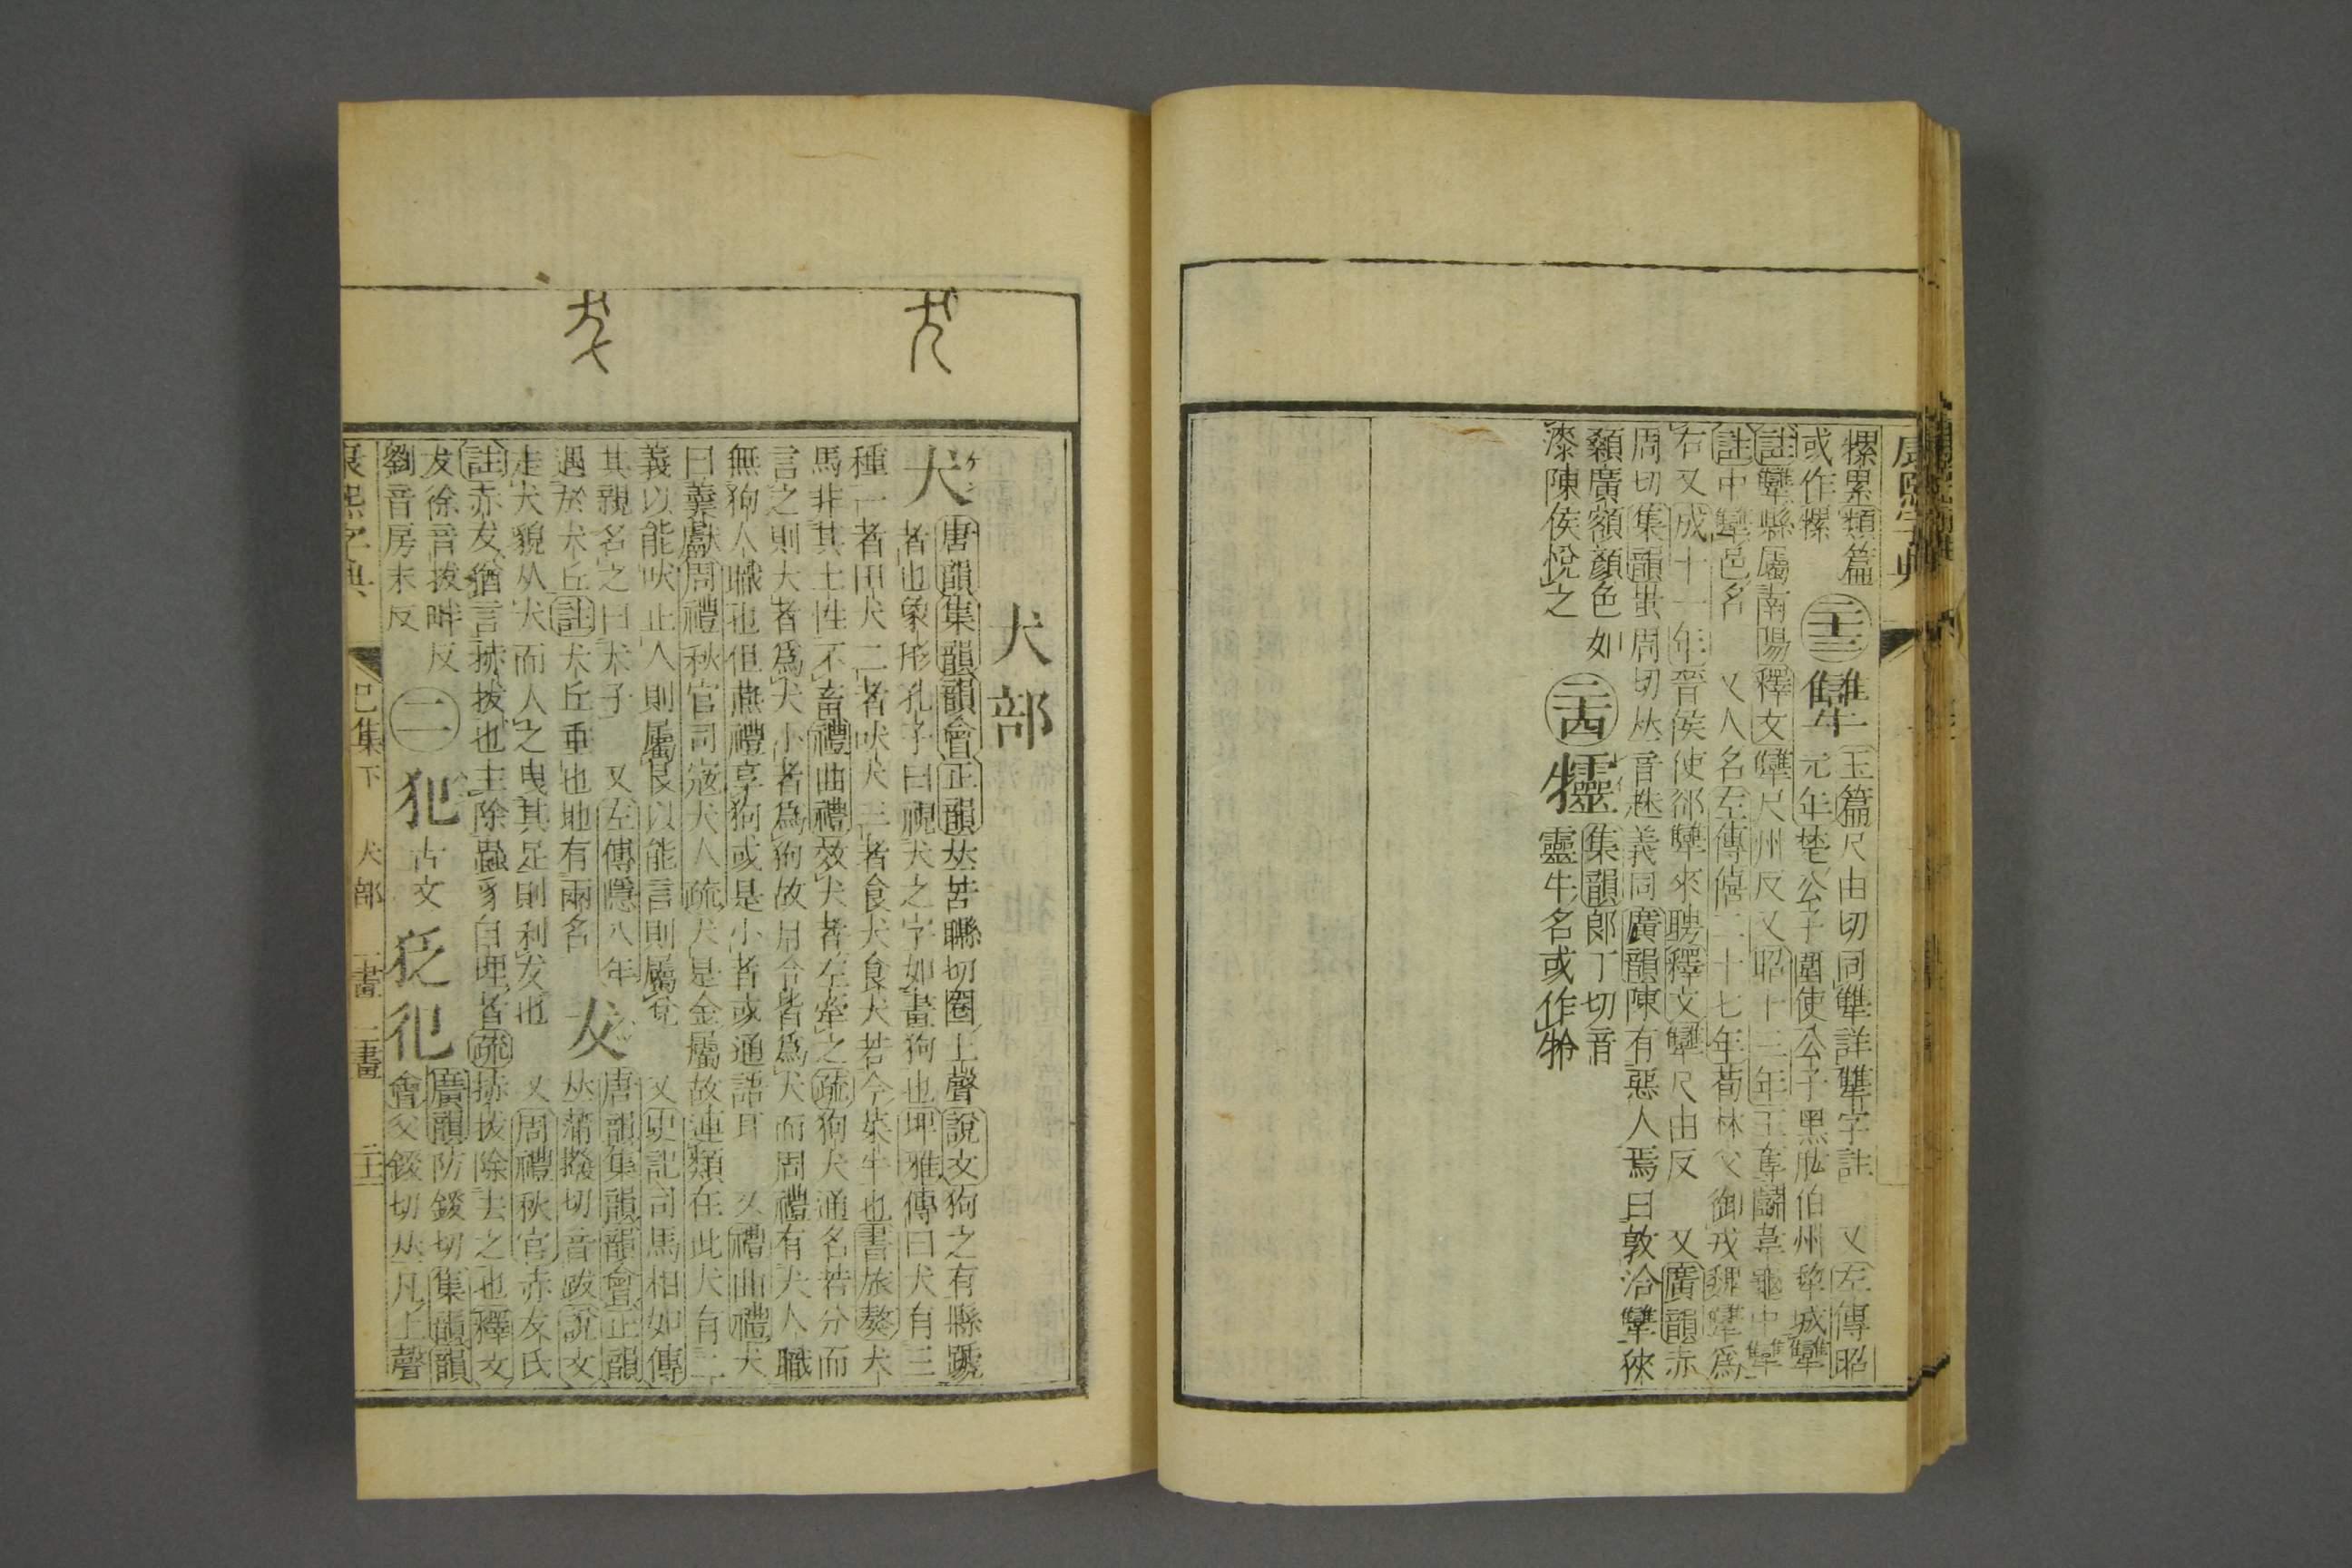 康熙字典
犘累類篇 二十三 犫 玉篇尺由切同犨詳犨字註 又左傳昭
或作犘 元年楚公子圍使公子黑肱伯州犂城犫
註犫縣屬南陽釋文犫尺州反又昭十三年王奪鬭韋龜中犫
註中犫邑名 又人名左傳僖二十七年荀林父御戎魏犫爲
右又成十一年晉侯使郤犫來聘釋文犫尺由反 又廣韻赤
周切集韻蚩周切𠀤音義同廣韻陳有惡人焉曰敦洽犫㑞
顙廣額顏色如 二十四 㸢 集韻郎丁切音
漆陳侯悅之 靈牛名或作㸳
犬部
犬 唐韻集韻韻會正韻𠀤苦𤣎切圈上聲說文狗之有縣蹏
者也象形孔子曰視犬之字如畫狗也埤雅傳曰犬有三
種一者田犬二者吠犬三者食犬食犬若今菜牛也書旅獒犬
馬非其土性不畜禮曲禮效犬者左牽之疏狗犬通名若分而
言之則大者爲犬小者爲狗故月令皆爲犬而周禮有犬人職
無狗人職也但燕禮亨狗或是小者或通語耳 又禮曲禮犬
曰羹獻周禮秋官司寇犬人疏犬是金屬故連類在此犬有二
義以能吠止人則屬艮以能言則屬兌 又史記司馬相如傳
其親名之曰犬子 又左傳隱八年
遇於犬丘註犬丘垂也地有兩名
犮 唐韻集韻韻會正韻
𠀤蒲撥切音跋說文
走犬貌从犬而人之曳其足則剌犮也 又周禮秋官赤犮氏
註赤犮猶言捇拔也主除蟲豸自埋者疏捇拔除去之也釋文
犮徐音拔畔反
劉音房末反
二 犯 古文 㹃 㐽
廣韻防錽切集韻韻
會父錽切𠀤凡上聲
康熙字典 巳集下 犬部 一畫 二畫